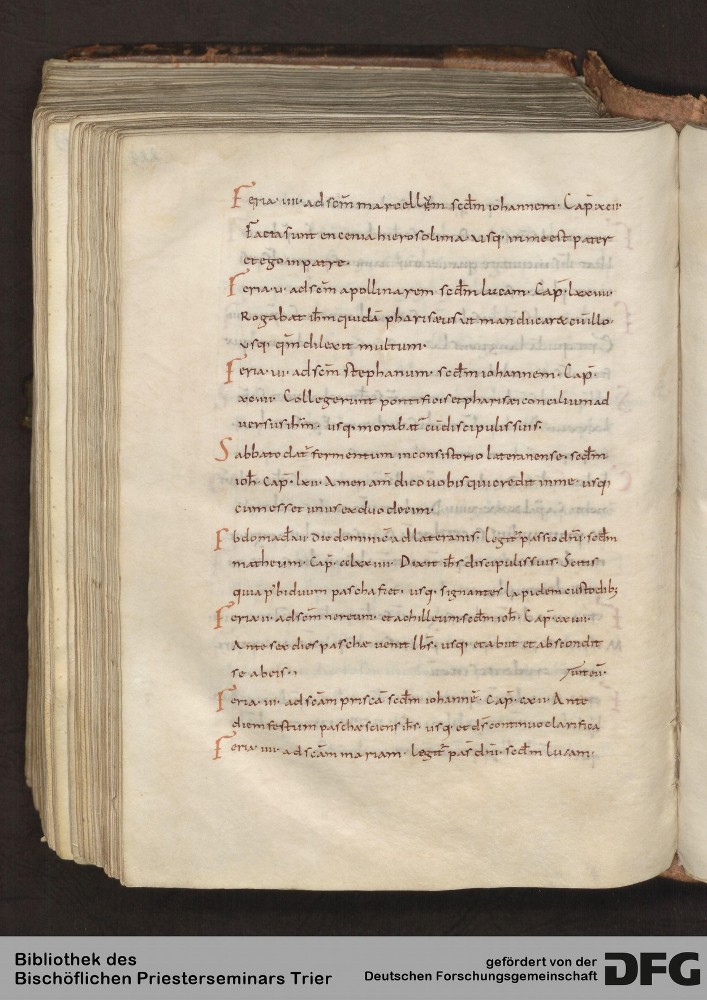 Feria · iiii · ad scm̄ marcellū scdm̄ iohannem · Cap̄ xcii·
Facta sunt encenia hierosolima · usq· in me est pater
et ego in patre·
Feria · v · ad scm̄ apollinarem scdm̄ lucam · Cap̄ · lxxiiii·
Rogabat ihm̄ quidā phariseus ut manducaret cū illo·
usq· qm̄ dilexit multum·
Feria · vi · ad scm̄ stephanum scdm̄ iohannem · Cap̄
Collegerunt pontifices et pharisei concilium ad
uersus ihm̄ · usq· morabat̄ cū discipulis suis·
Sabbato dat̄ fermentum in consistorio lateranense · scdm̄
ioh̄ cap̄ · lxii· Amen am̄ dico uobis qui credit in me · usq·
cum esset unus ex duodecim·
Ebdomad̄ vi die dominic̄ ad lateranis · Legit̄ passio dn̄i scdm̄
matheum · Cap̄ · cclxxiiii· Dixit ih̄s discipulis suis · Scitis
quia p̄ biduum pascha fiet · usq· signantes lapidem custodib;
Feria · ii · ad scm̄ nereum · et achilleum scdm̄ ioh̄ · Cap̄
Ante sex dies paschae uenit ih̄s · usq· et abiit et abscondit
se ab eis·
Feria · iii · ad scam̄ priscā scdm̄ iohannē · Cap̄ · cxii · Ante
diem festum paschae sciens ih̄s · usq· et d̄s continuo clarifica
Feria · iiii · ad scam̄ mariam · legit̄ pas̄ dn̄i · scdm̄ lucam·
Bibliothek des
Bischöflichen Priesterseminars Trier
gefördert von der
Deutschen Forschungsgemeinschaft
DFG